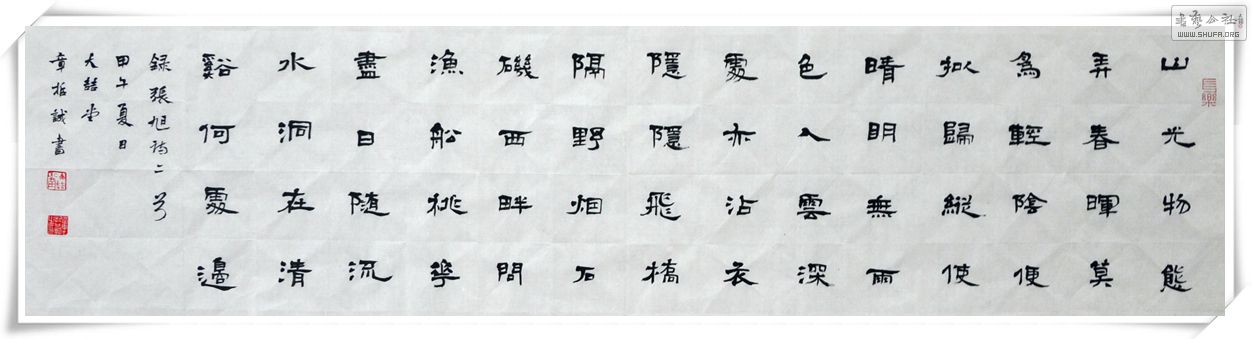 書藝公社
WWW.SHUFA.ORG
長樂
山光物態
弄春暉莫
為輕陰便
拟歸縱使
晴明無雨
色入雲深
處亦沾衣
隱隱飛橋
隔野烟石
磯西畔問
漁船桃華
盡日隨流
水洞在清
谿何處邊
録張旭詩二首
甲午夏日
大喆堂
章哲誠書